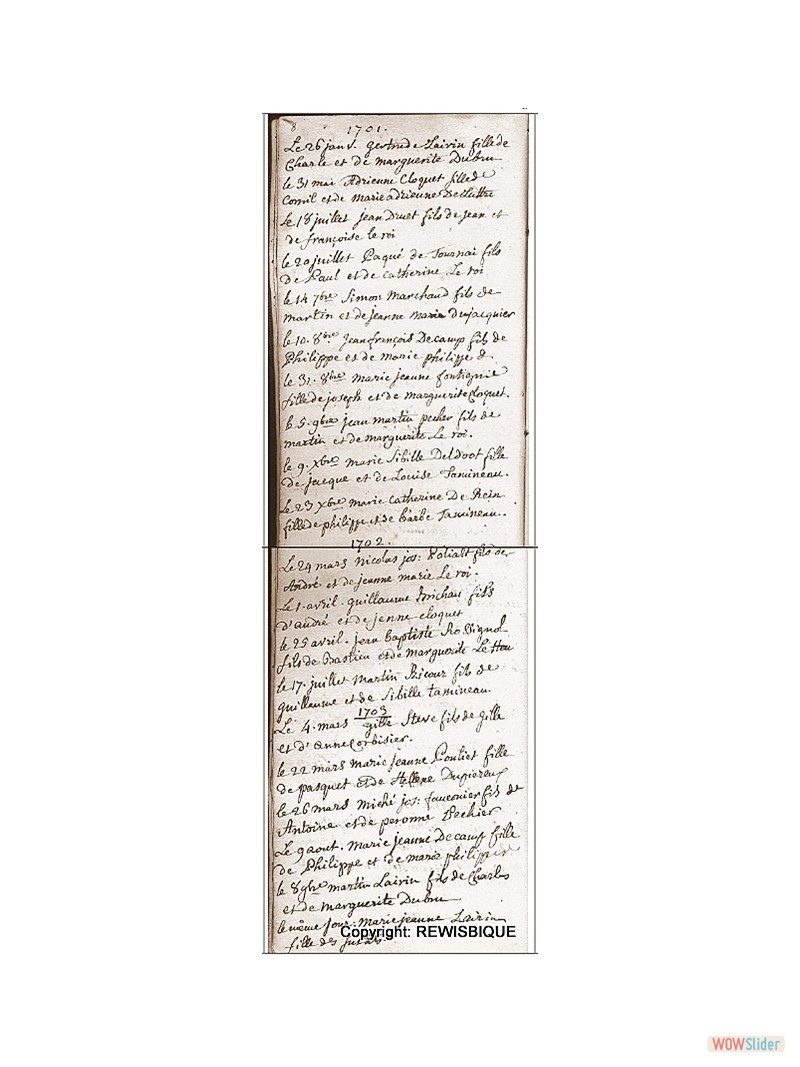 8
1701.
Le 26 janv. gertrude Lairin fille de
Charle et de marguerite Dubru
le 31 mai Adrienne Cloquet fille de
Cornil et de marie adrienne
Le 18 juillet jean Druet fils de jean et
de françoise le roi
le 20 juillet Paqué de Tournai fils
de Paul et de catherine Le roi
le 14 7bre Simon marchand fils de
martin et de jeanne marie Dujacquier
le 10. 8bre jean françois Decamp fils de
Philippe et de marie philippe
le 31. 8bre marie jeanne fontignie
fille de joseph et de marguerite Cloquet.
le 5. 9bre jean martin pecher fils de
martin et de marguerite Le roi.
le 9. Xbre marie Sibille Deldoot fille
de jacque et de Louise Tamineau.
Le 23 Xbre marie catherine De Rein
fille de philippe et de barbe Tamineau..
1702.
Le 24 mars nicolas jos: fils de
André et de jeanne marie Le roi.
Le 1. avril. guillaume fils
d'andré et de jenne cloquet
le 25 avril. jean baptiste Rossignol
fils de Bastien et de marguerite Le Hou
le 17. juillet martin Ricour fils de
guilleaume et de Sibille tamineau.
1703
Le 4. mars gille Steve fils de gille
et d'anne Corbisier.
le 22 mars marie jeanne Pouliet fille
de pasquet et de Hellene Dupiereux
le 26 mars miché jos: fauconier fils de
Antoine et de peronne Pechier
Le 9 aout. marie jeanne Decamp fille
de Philippe et de marie philippe
le 8 9bre martin Lairin fils de Charles
et de marguerite Dubru
le même jour: marie jeanne Lairin
fille des
Copyright: REWISBIQUE
WOWSlider